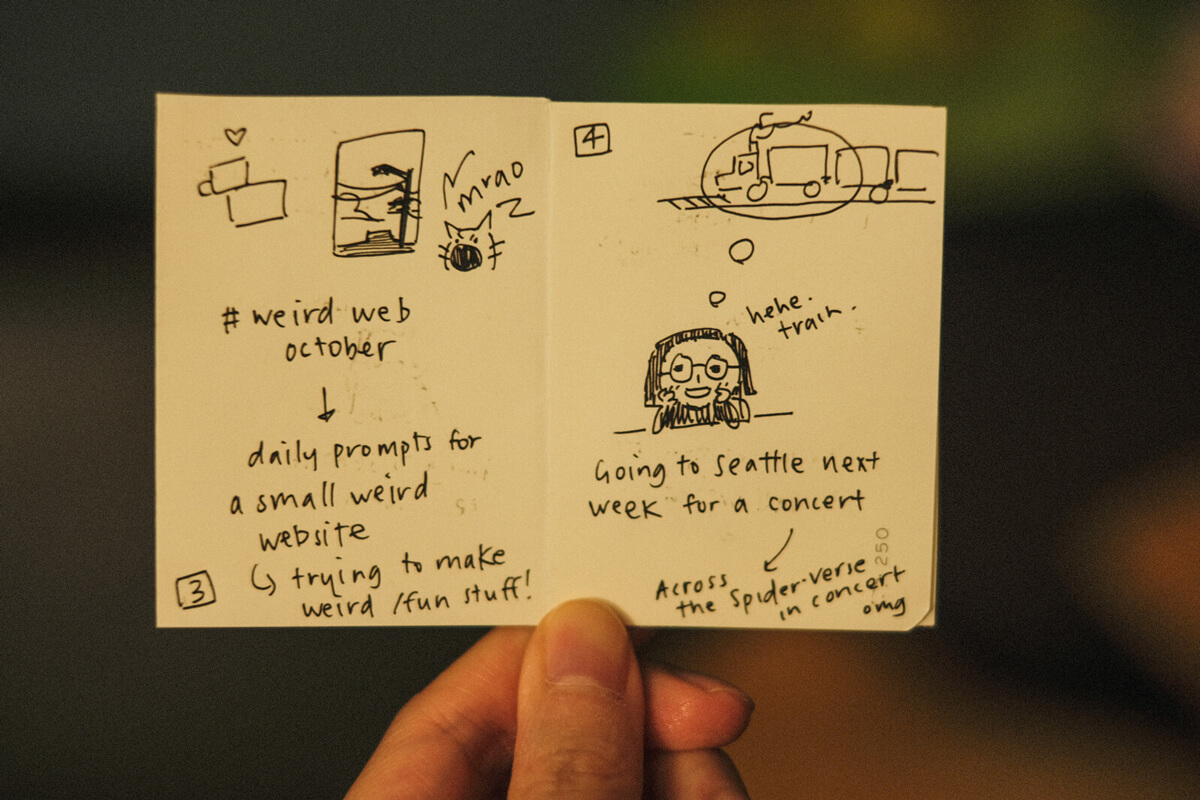 mrao
# weird web
october
daily prompts for
a small weird
website
↳ trying to make
weird /fun stuff!
3
4
hehe.
train.
Going to seattle next
week for a concert
250
Across
the Spider-verse
in concert
omg